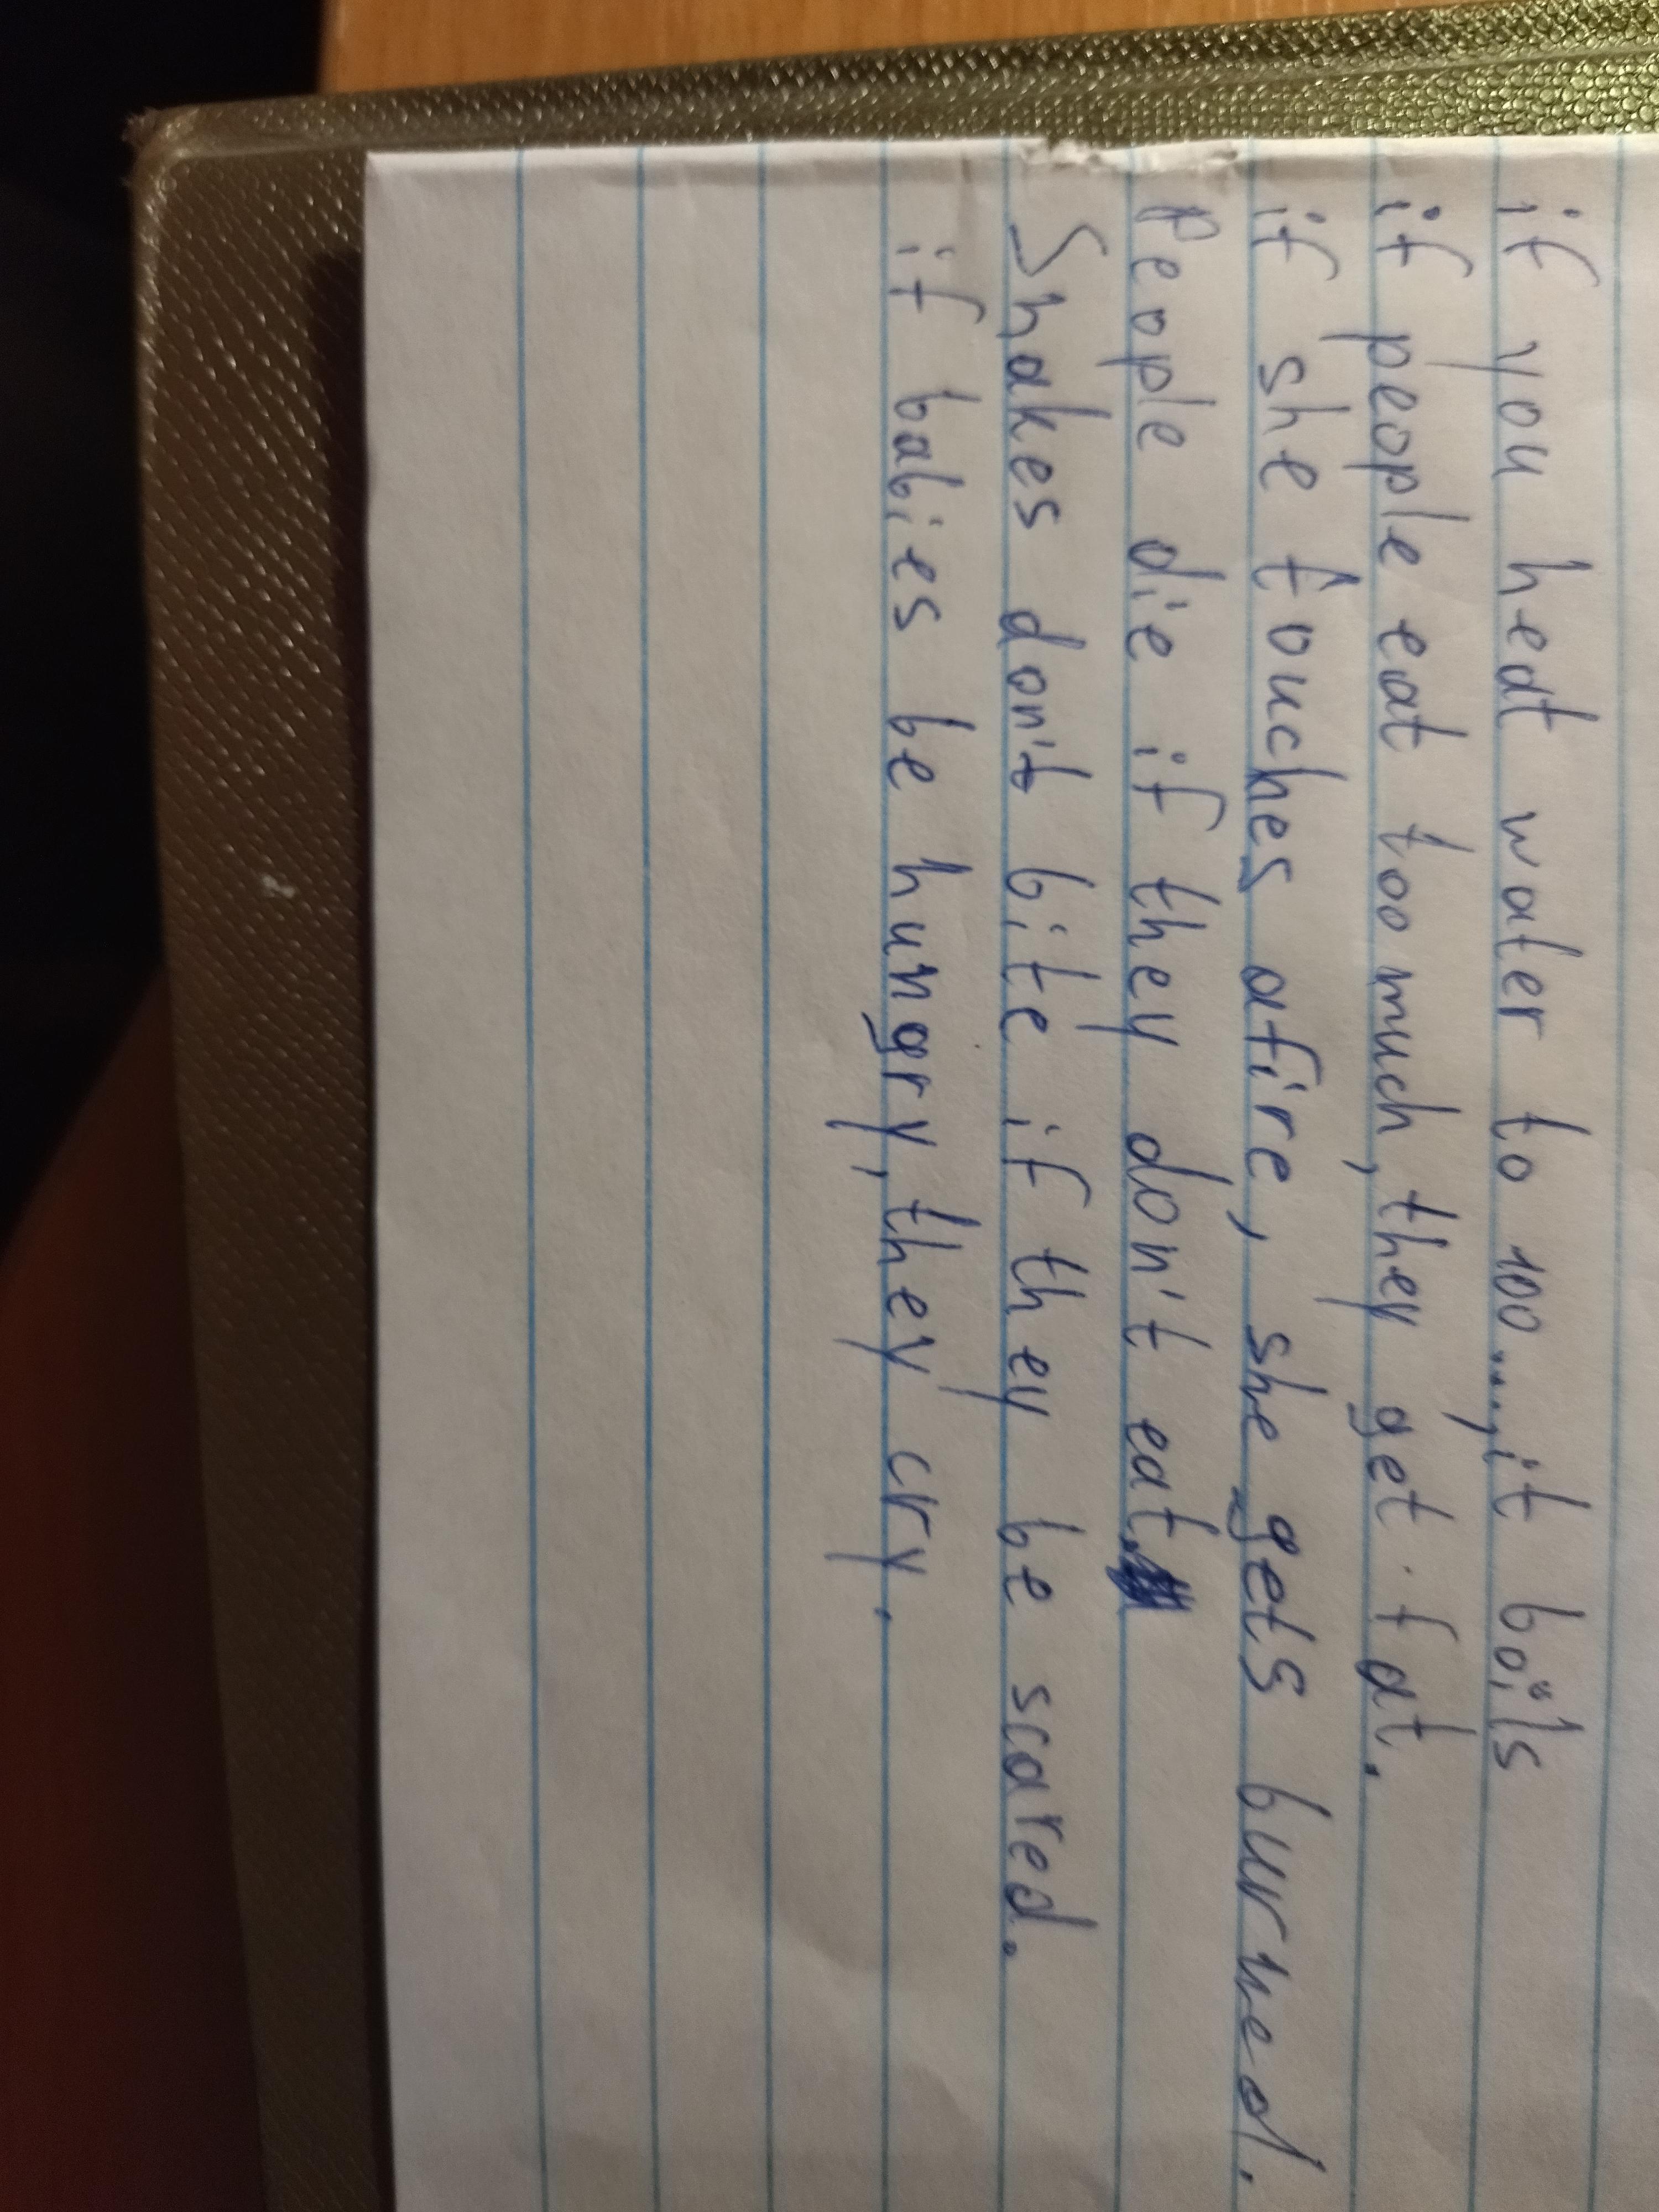 if you heat water to 100...., it boils
if people eat too much, they get fat.
if she touches a fire, she gets burned.
People die if they don't eat.
Snakes don't bite if they be scared.
if babies be hungry, they cry.